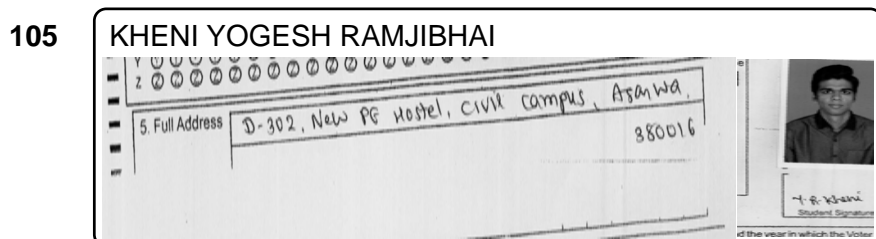 105 KHENI YOGESH RAMJIBHAI
Y
Z Z Z Z Z Z Z Z Z Z Z Z Z Z Z Z Z
5. Full Address D-302, New PG Hostel, Civil Campus, Asarwa,
380016
Y.R. Kheni
Student Signature
d the year in which the Voter